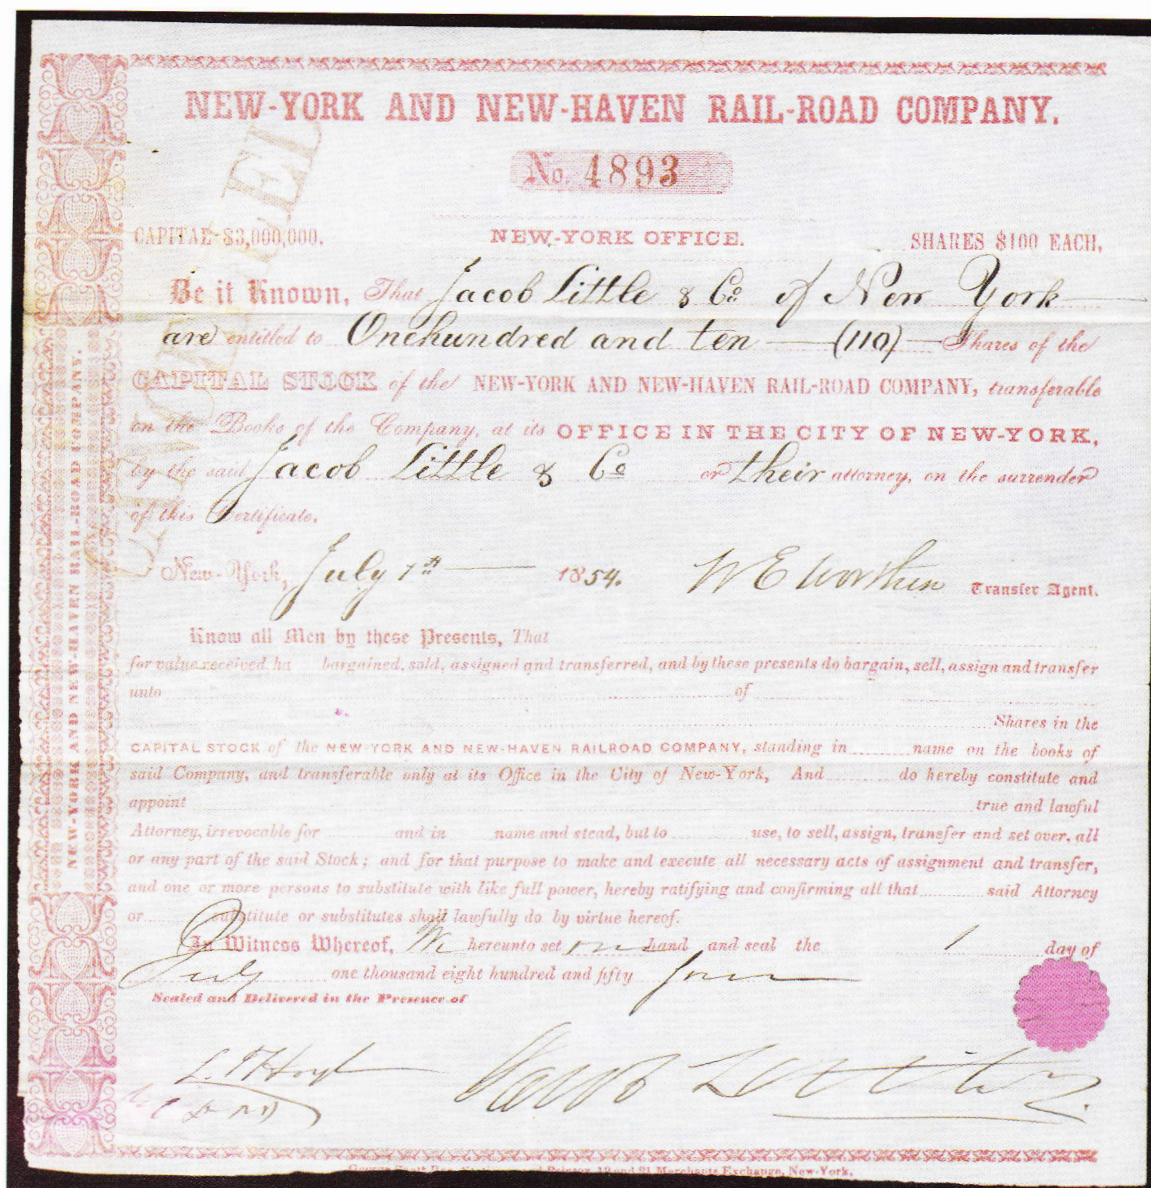 NEW-YORK AND NEW-HAVEN RAIL-ROAD COMPANY.
No. 4893
CAPITAL $3,000,000. NEW-YORK OFFICE. SHARES $100 EACH,
Be it Known, That Jacob Little & Co. of New York
are entitled to One hundred and ten (110) Shares of the
CAPITAL STOCK of the NEW-YORK AND NEW-HAVEN RAIL-ROAD COMPANY, transferable
on the Books of the Company, at its OFFICE IN THE CITY OF NEW-YORK,
by the said Jacob Little & Co or their attorney, on the surrender
of this Certificate.
New-York, July 1st 1854. W E Worthen Transfer Agent.
Know all Men by these Presents, That
for value received ha bargained, sold, assigned and transferred, and by these presents do bargain, sell, assign and transfer
unto of
Shares in the
CAPITAL STOCK of the NEW-YORK AND NEW-HAVEN RAILROAD COMPANY, standing in name on the books of
said Company, and transferable only at its Office in the City of New-York, And do hereby constitute and
appoint true and lawful
Attorney, irrevocable for and in name and stead, but to use, to sell, assign, transfer and set over, all
or any part of the said Stock; and for that purpose to make and execute all necessary acts of assignment and transfer,
and one or more persons to substitute with like full power, hereby ratifying and confirming all that said Attorney
or substitute or substitutes shall lawfully do by virtue hereof.
In Witness Whereof, We hereunto set our hand and seal the 1 day of
July one thousand eight hundred and fifty four
Sealed and Delivered in the Presence of
Jacob Little
Merchants Exchange, New-York.
NEW-YORK AND NEW-HAVEN RAIL-ROAD COMPANY.
CANCELLED